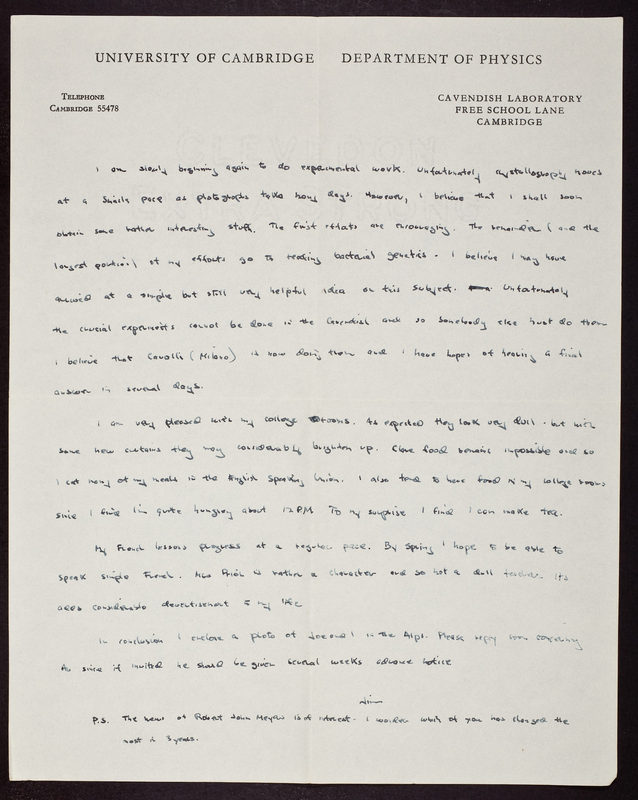 UNIVERSITY OF CAMBRIDGE DEPARTMENT OF PHYSICS
TELEPHONE
CAMBRIDGE 55478
CAVENDISH LABORATORY
FREE SCHOOL LANE
CAMBRIDGE
I am slowly beginning again to do experimental work. Unfortunately crystallography moves
at a snails pace as photographs take many days. However, I believe that I shall soon
obtain some rather interesting stuff. The first efforts are encouraging. The remainder (and the
longest portion) of my efforts go to reading bacterial genetics. I believe I may have
arrived at a simple but still very helpful idea on this subject. Unfortunately
the crucial experiments cannot be done in the Cavendish and so somebody else must do them
I believe that Cavalli (Milano) is now doing them and I have hopes of hearing a final
answer in several days.
I am very pleased with my college rooms. As expected they look very dull - but with
some new curtains they may considerably brighten up. Clare food remains impossible and so
I eat many of my meals in the English Speaking Union. I also tend to have food in my college rooms
since I find I'm quite hungry about 12 PM. To my surprise I find I can make tea.
My French lessons progress at a regular pace. By Spring I hope to be able to
speak simple French. Miss Prior is rather a character and so not a dull teacher. Its
adds considerable to my life
In conclusion I enclose a photo of and I in the Alps. Please reply soon concerning
Av since if invited he should be given several weeks advance notice
Jim
P.S. The news of Robert John Meyers is of interest - I wonder which of you has changed the
most in 3 years.